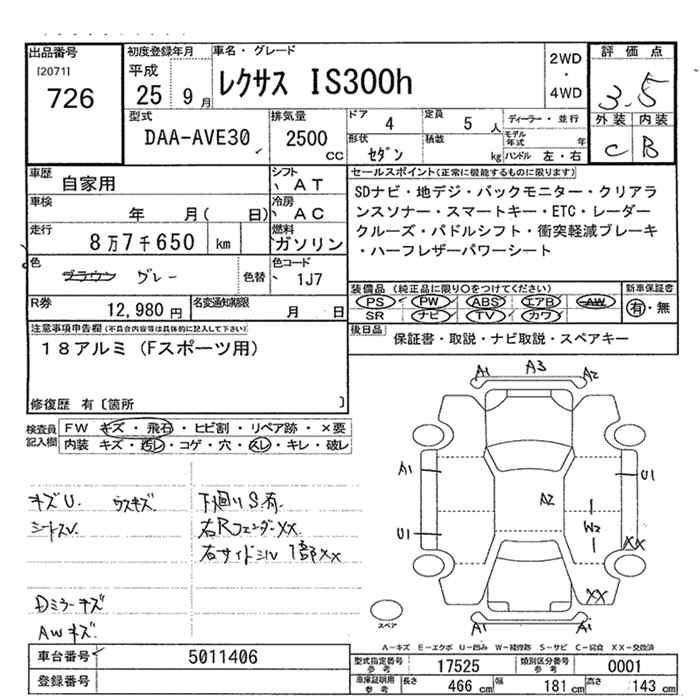 出品番号
[2071]
726
初度登録年月
平成
25 9月
車名・グレード
レクサス IS300h
2WD
・
4WD
評価点
3.5
外装 内装
C B
型式
DAA-AVE30
排気量
2500
CC
ドア 4
定員 5 人
ディーラー・並行
形状 セダン
積載 kg
モデル年式 年
ハンドル 左・右
車歴 自家用
シフト AT
車検 年 月( 日)
冷房 AC
走行 8万7千650 km
燃料 ガソリン
色 ブラウン グレー
色替
色コード 1J7
R券 12,980円
名変通知期限 月 日
セールスポイント(正常に機能するものに限ります)
SDナビ・地デジ・バックモニター・クリアラ
ンスソナー・スマートキー・ETC・レーダー
クルーズ・パドルシフト・衝突軽減ブレーキ
・ハーフレザーパワーシート
装備品 (純正品に限り○をつけてください)
新車保証書
PS PW ABS エアB AW
有・無
SR ナビ TV カワ
後日品 保証書・取説・ナビ取説・スペアキー
注意事項申告欄(不具合内容等は具体的に記入して下さい)
18アルミ(Fスポーツ用)
修復歴 有〔箇所 〕
検査員
記入欄
FW キズ・飛石・ヒビ割・リペア跡・×要
内装 キズ・汚レ・コゲ・穴・スレ・キレ・破レ
キズU. ウスキズ.
シートスレ.
下廻りS有.
右RフェンダーXX.
右サイドシル1部XX
Dミラーキズ
AWキズ.
A1 A3 A2
A1
U1
A2
U1
W2
XX
XX
A1 A1
スペア
A−キズ E−エクボ U−凹み W−補修跡 S−サビ C−腐食 XX−交換済
車台番号 5011406
登録番号
型式指定番号 参考 17525
類別区分番号 参考 0001
車庫証明用 参考
長さ 466 cm
幅 181 cm
高さ 143 cm